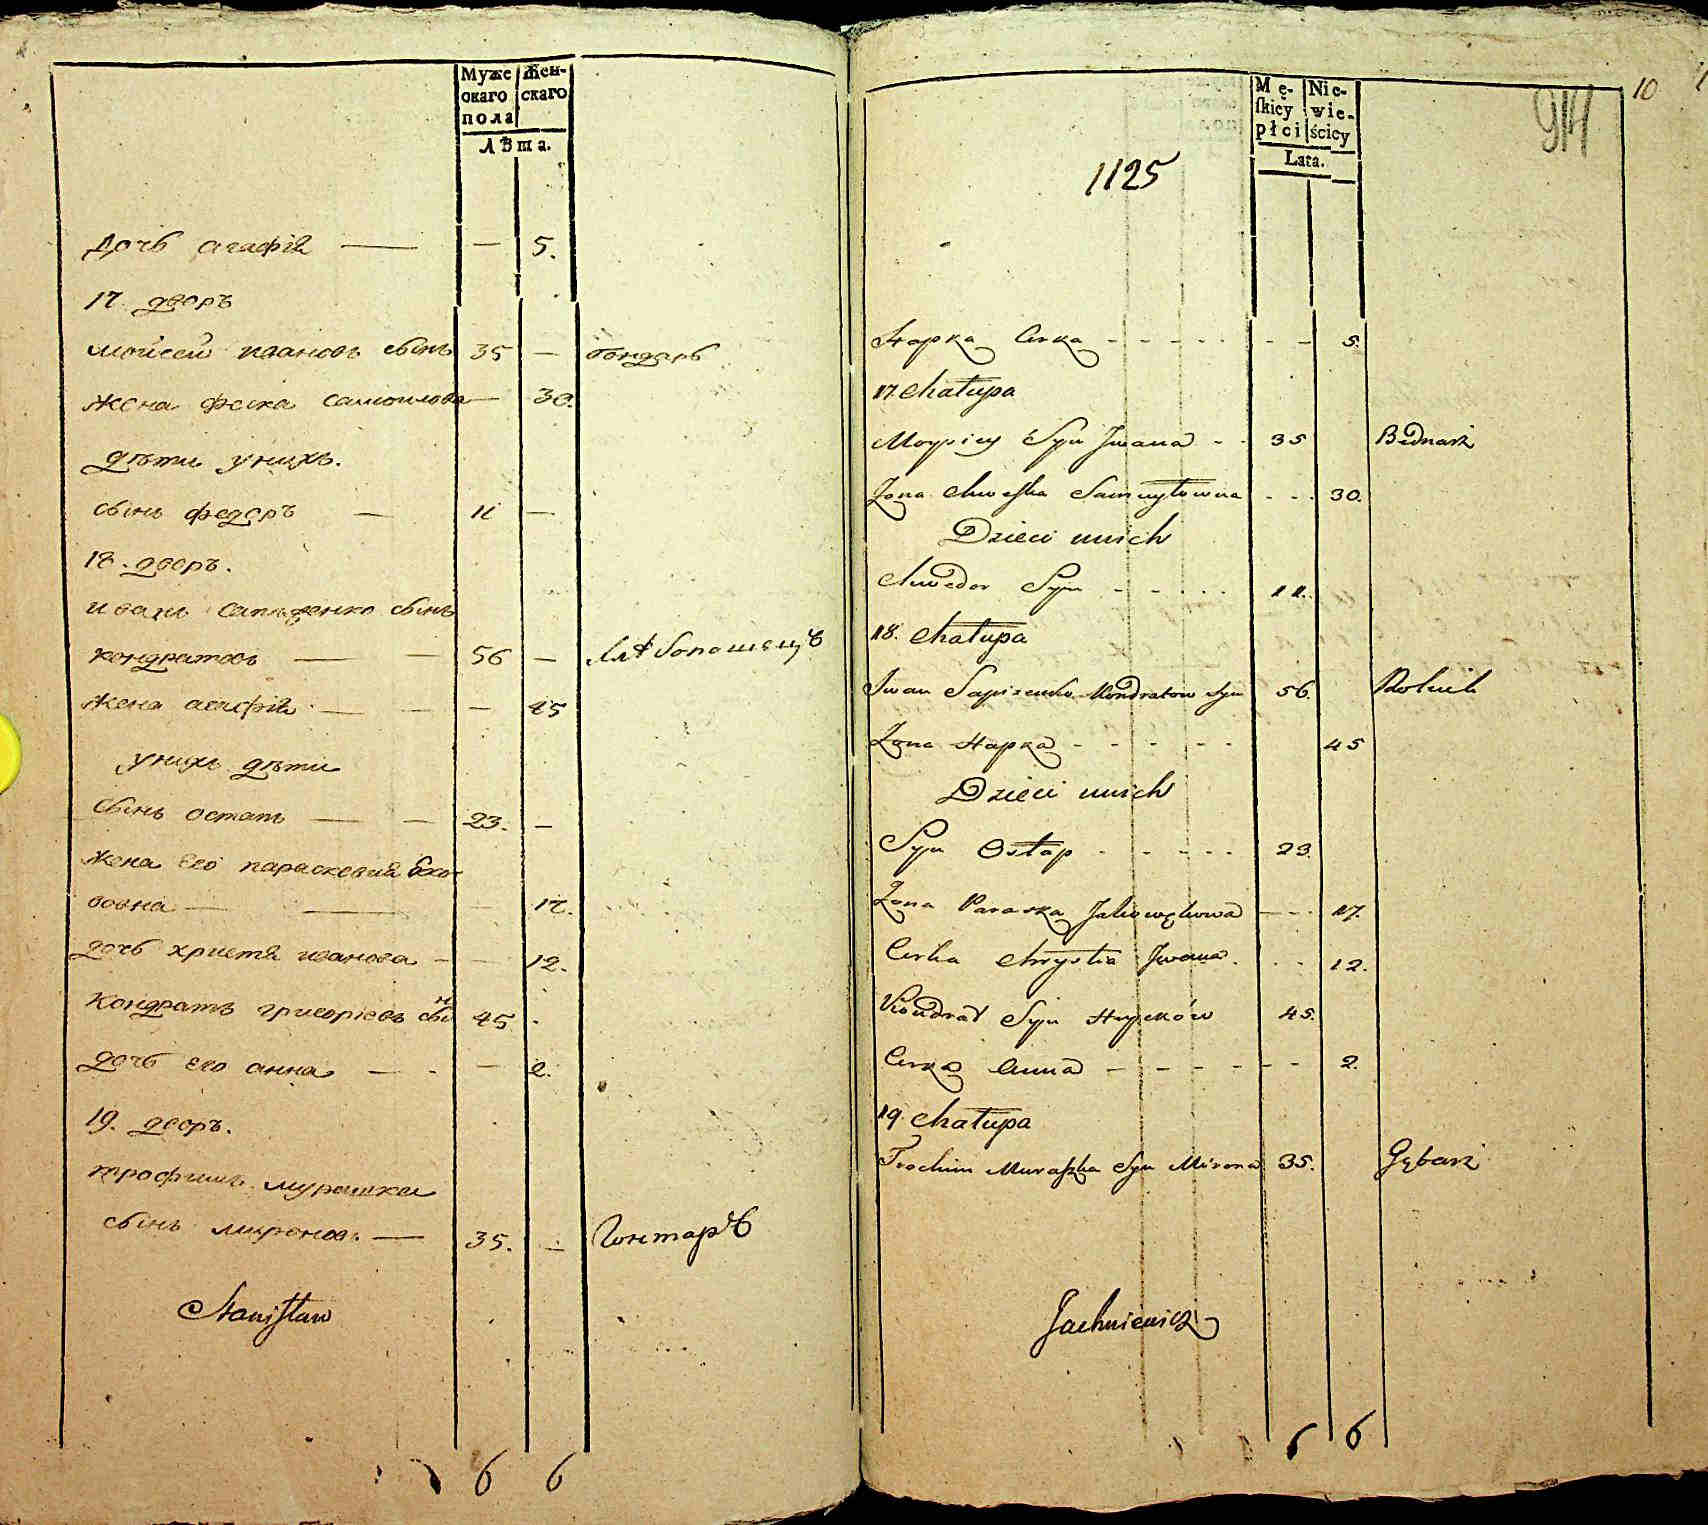 Муже Жен-
скаго скаго
пола
Лѣта.
дочь агафія — — 5.
17. дворъ
мойсей ивановъ сынъ 35 — бондарь
жена феска самоилова — 30.
дѣти унихъ.
сынъ федоръ — 11 —
18. дворъ.
иванъ сапѣженко сынъ
кондратовъ — — 56 — хлѣбопашецъ
жена агафія — — — 45
унихъ дѣти
сынъ остапъ — — 23. —
жена его параскевия
вовна — — — 17.
дочь христя иванова — — 12.
кондратъ григориевъ сынъ 45
дочь его анна — - — 2.
19. дворъ.
трофимъ мурашка
сынъ мироновъ — 35. — Гонтарь
Stanisław
6 6
10
914
Mę- Nie-
skiey wie-
płci ściey
Lata.
1125
Hapka Curka - - - - - - - 5.
17. Chałupa
Moysiey Syn Jwana - - 35 Bednarz
Żona Chweska Samuyłowna - - - 30.
Dzieci unich
Chwedor Syn - - - - - 11.
18. Chałupa
Jwan Sapiżenko Kondratow Syn 56. Rolnik
Żona Hapka - - - - - - 45
Dzieci unich
Syn Ostap - - - - - 23.
Żona Paraska - - - 17.
Curka Chrystia Jwana. - - 12.
Kondrat Syn Hryćków 45.
Curka Anna - - - - - - - 2.
19. Chałupa
Trochim Muraszka Syn Mirona 35. Gębarz
Jachniewicz
6 6